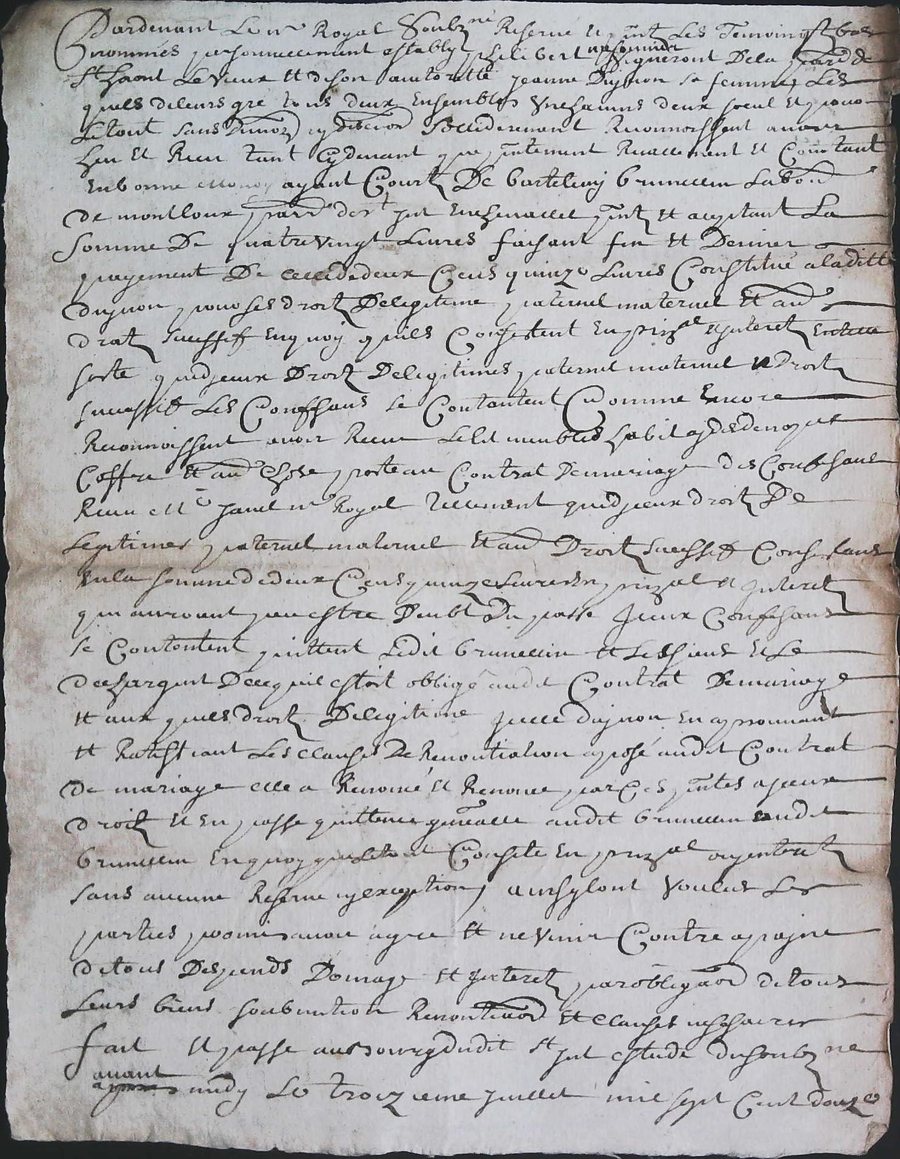 Pardevant Le nre Royal Soubzné Reserve et pnt Les Temoins st bas
nommés personnellement establys philibert vigneront De la parr de
St haont Le vieux et de son autoritté jeanne Dujnon sa femme Les
quels de leurs gre tous deux Ensembles Une sains deux seul et pour
Le tout sans Divizon ny discion solliderement Reconnoissent avoir
Heu et Receu tant Cydevant que pntement Reallement et Contant
En bonne monoy ayant Court De bartelemy brunellin Labour
De montloux parr de st jut En chevallet pnt et aceptant La
Somme De quatre vingt Livres faisant fin et Dernier
payement De celle de deux Cens quinze Livres Constitué a laditte
dujnon pour ses droitz De legitime paternel maternel et aud
droit sucessif En quoy qu'ils Consistent En prinzal et jnteretz En telle
sorte que diceux Droitz De legitimes paternel maternel et Droitz
sucessifs Les Confessans se Contantent Comme Encore
Reconnoissent avoir Receu Leld meubles habit ards de noyces
Coffre et aud Chose porte au Contrat De mariage des Confessans
Receu me janel nre Royal tellement que diceux droitz De
Legitimes paternel maternel et aud Droitz sucessifs Consistans
En la somme de deux Cens quinze Livres En prinzal et jnteretz
qui auroint peu estre Deubt Du passe jceux Confessans
se Contentent quittent Ledit brunellin et Les siens et Le
deschargent De ce qu'il estoit obligé audit Contrat De mariage
et aux quels droitz De legitime jcelle dujnon En aprouvant
et Ratiffiant Les clauses De Renontiation aposé audit Contrat
De mariage elle a Renoncé et Renonce par Ces pntes a jceux
droitz et En passe quittance generalle audit brunellin
brunellin En quoy que le tout Consiste En prinzal ou jnteretz
sans aucune Reserve ny exception, ainsy l'ont Voulus Les
parties promis avoir agree et ne Venir Contre a paine
de tous Despends Domage et jnteretz par obligaon de tous
Leurs biens soubmition Renontiaon et clauses necessaires
fait et passe au bourg dudit st jut estude du soubzné
avant midy Le troizieme juillet mil sept Cent douze